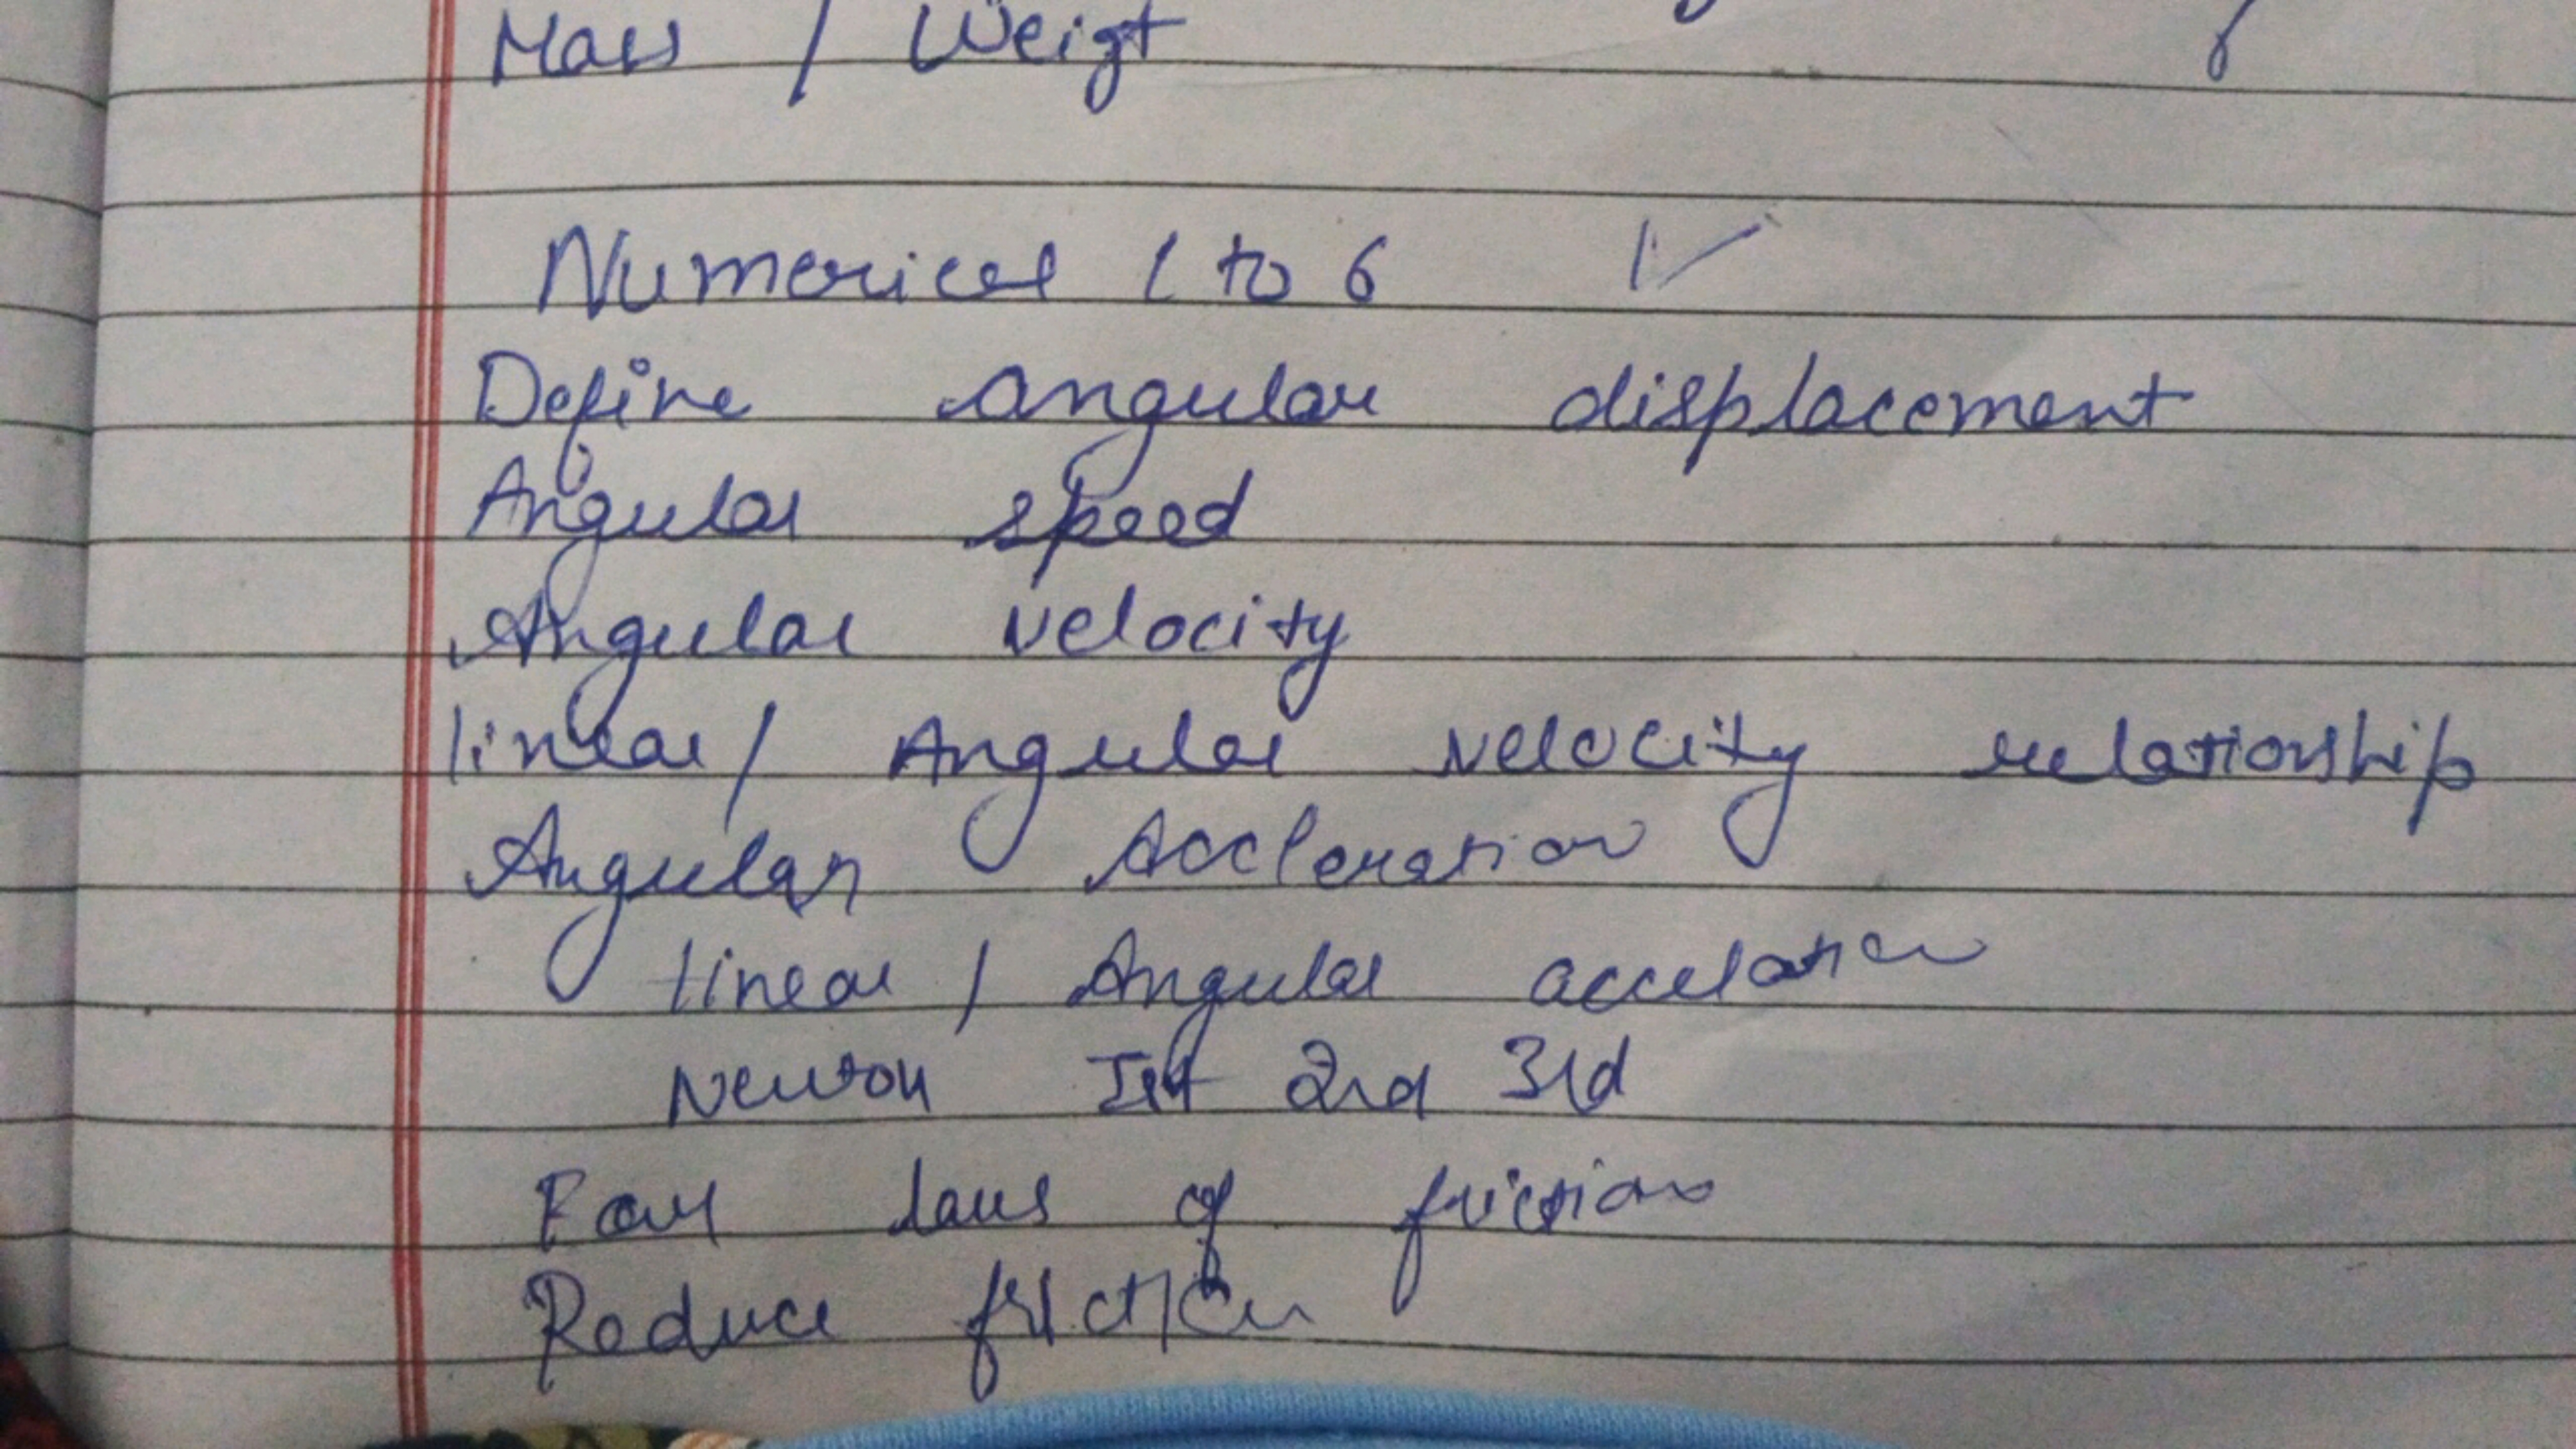 Mass / Weigt
Numerical 1 to 6
Define angular displacement
Angular speed
Angular velocity
linear / Angular velocity relationship
Angular Accleration
linear / Angular accelation
Newton Ist 2nd 3rd
Four laws of friction
Reduce friction